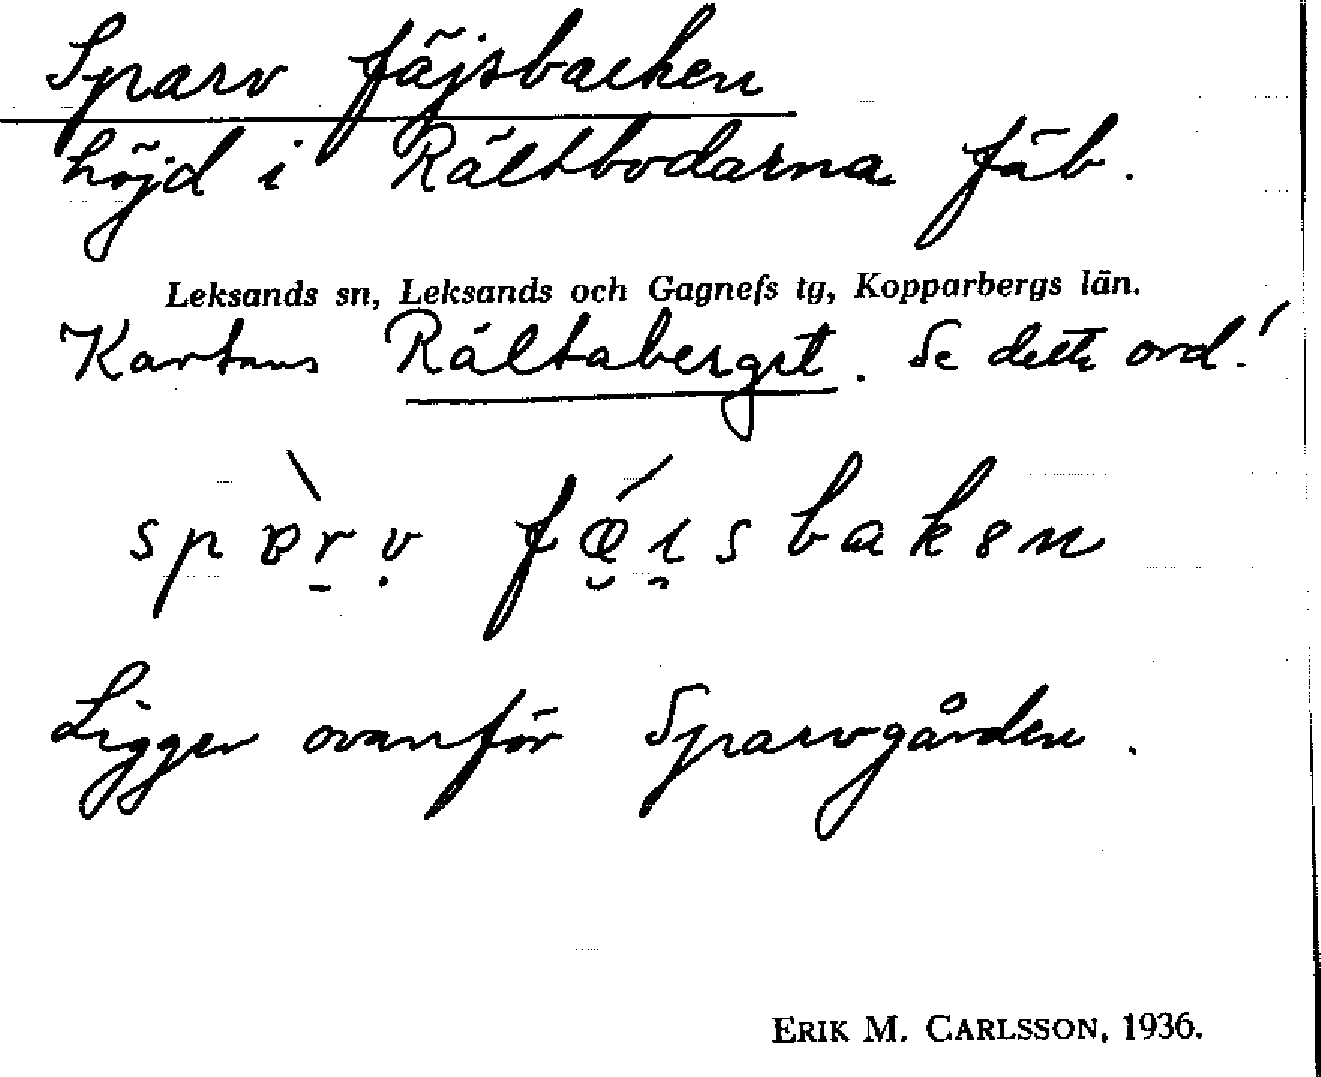 Sparv fäjsbacken
höjd i Rältbodarna fäb.
Leksands sn, Leksands och Gagnefs tg, Kopparbergs län.
Kartans Rältaberget. Se detta ord!
Ligger ovanför Sparvgården.
ERIK M. CARLSSON, 1936.